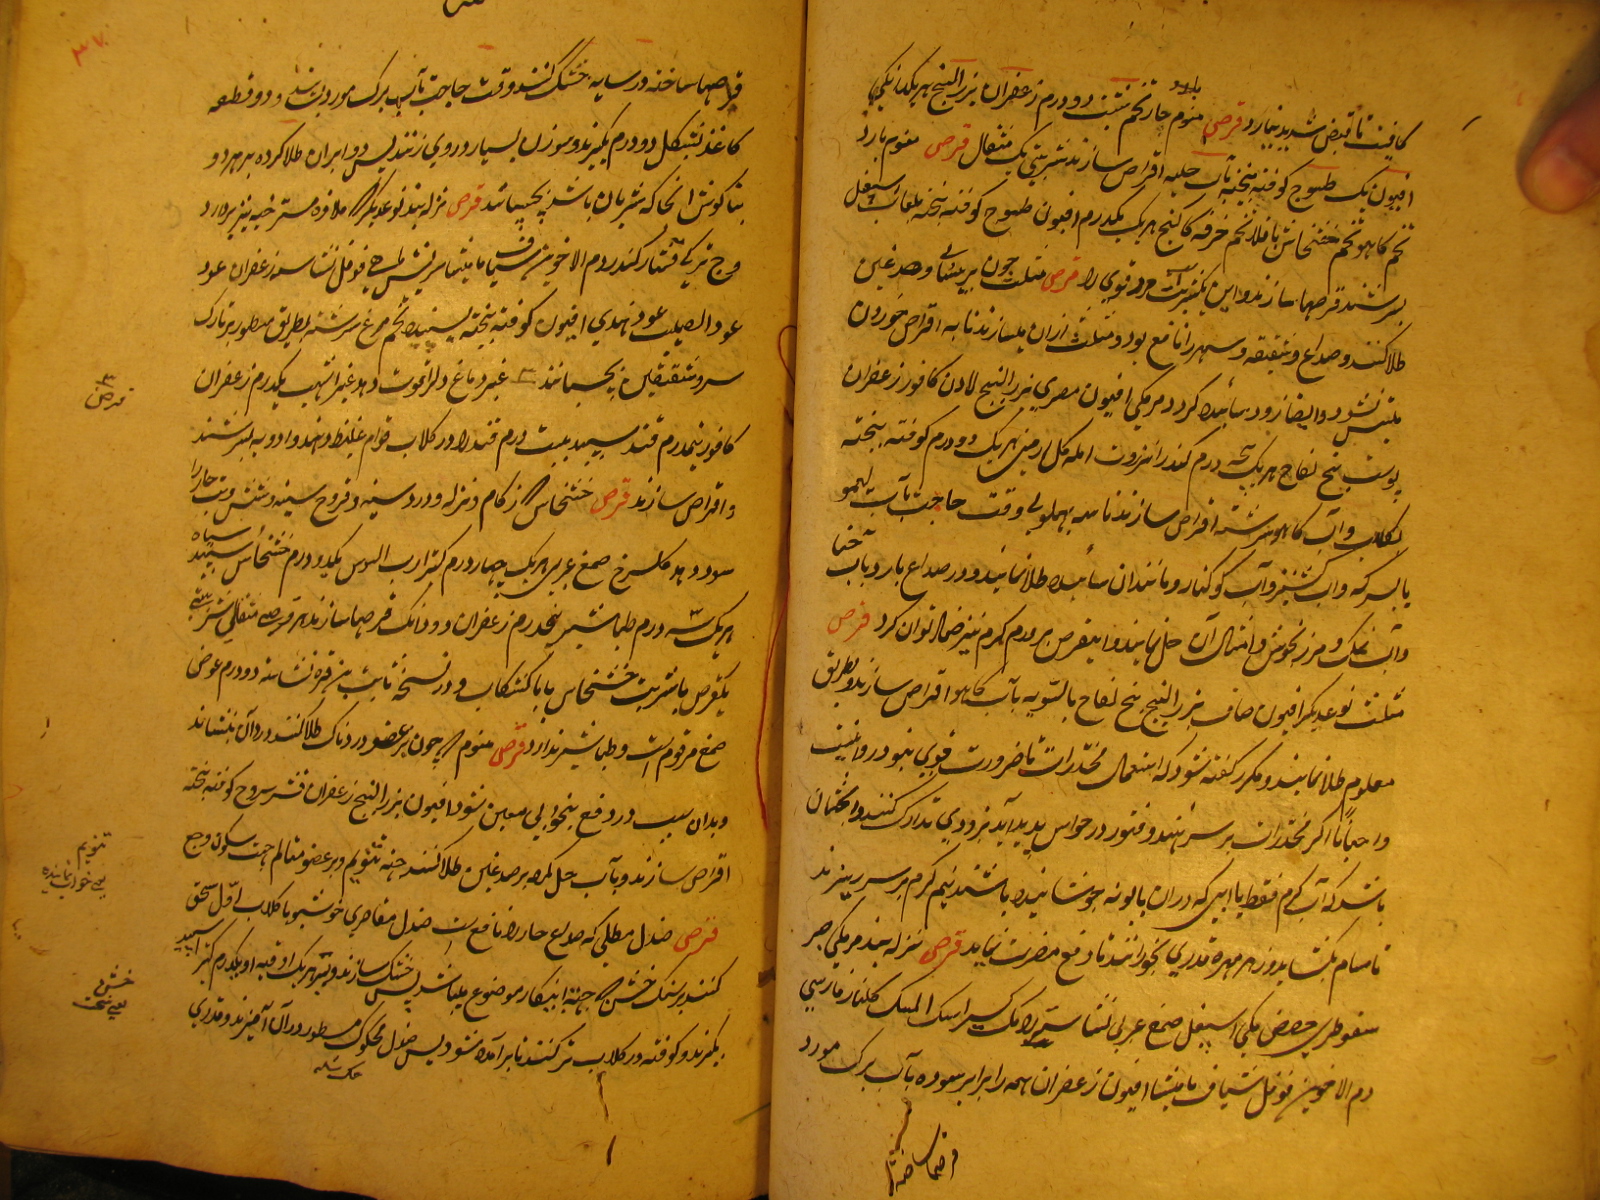 کافیت تا قبض شدید نیارد قرص منوم حار تخم شبت دو درم زعفران بزر البنج هریک دانکی
بارد
افیون یک طسوج کوفته بیخته بآب حلبه اقراص سازند شربتی یک مثقال قرص منوم بارد
تخم کاهو تخم خشخاش باقلا تخم خرفه کاکنج هریک یکدرم افیون طسوج کوفته بیخته بلعاب اسپغول
بسرشند قرصها سازند و این یکشربت مرد قوی را قرص مثلث چون بر پیشانی و صدغین
طلا کنند صداع و شقیقه و سهر را نافع بود و مثلث ازان میسازند تا به اقراص خوردن
ملتبس نشود و ایضا زود سائیده گردد مر مکی افیون مصری بزر البنج لادن کافور زعفران
پوست بیخ لفاح هریک درم کندر انزروت امله گل ارمنی هریک دو درم کوفته بیخته
بگلاب و آب کاهو سرشته اقراص سازند سه پهلو وقت حاجت بآب لیمو
یا بسرکه و آب کشنیز و آب کوکنار و مانند ان سائیده طلا نمایند و در صداع بارد بآب حنا
و آب نمک و مرزنجوش و امثال آن حل نمایند و اینقرص بر ورم گرم نیز ضماد توان کرد قرص
مثلث نوعدیگر افیون صاف بزر البنج بیخ لفاح بالسویه بآب کاهو اقراص سازند و بطریق
معلوم طلا نمایند و مکرر گفته شود که استعمال مخدرات تا ضرورت قوی نبود روا نیست
و احیانا اگر مخدران بر سر نهند و فتور در حواس پدید آید بزودی تدارک کنند و انچنان
باشد که آب گرم فقط یا آبی که دران بابونه جوشانیده باشند نیم گرم بر سر ریزند
تا مسام بکشاید و زهر مهره قدری بخورانند تا دفع مضرت نماید قرص نزله بند مر مکی صبر
سقوطری حضض مکی اسپغول صمغ عربی نشاسته رامک سک المسک گلنار فارسی
دم الاخوین فوفل شیاف مامیثا افیون زعفران همه را برابر سوده بآب برگ مورد
قرصها ساخته
۳۷
قرصها ساخته در سایه خشک کنند وقت حاجت بآب برگ مورد و دو قطعه
کاغذ بشکل دو درم بگیرند و سوزن بسیار در وی زنند پس دوا بران طلا کرده بر هر دو
بناگوش انجا که شریان باشد بچسپانند قرص نزله بند نوعدیگر علاوه مسترخیه نیز بردارد
وج ترکی قسط کندر دم الاخوین شیاف مامیثا سریش ماهی فوفل نشاسته زعفران عود
عود الصلیب عود هندی افیون کوفته بیخته بسپیده تخم مرغ سرشته بطریق مسطور بر تارک
سر و شقیقین بچسپانند عنبر دماغ و دل را قوت دهد عنبر اشهب یکدرم زعفران
کافور نیمدرم قند سپید بیست درم قند را در گلاب قوام غلیظ دهند و ادویه بسرشند
و اقراص سازند قرص خشخاش زکام و نزله و درد سینه و قروح سینه و شش و تب حار را
سود دهد گلسرخ صمغ عربی هریک چهار درم کتیرا رب السوس یک و دو درم خشخاش سپید سیاه
هریک سه درم طباشیر پنجدرم زعفران دو دانک قرصها سازند هر قرصی مثقالی شربتی
یکقرص با شربت خشخاش یا با کشکاب و در نسخه ثابت بن قره نشاسته دو درم عوض
صمغ مرقوم است و طباشیر ندارد قرص منوم چون بر عضو دردناک طلا کنند درد آن بنشاند
و بدان سبب در رفع بیخوابی معین شود افیون بزر البنج زعفران قشر بیروج کوفته بیخته
اقراص سازند و بآب حل کرده بر صدغین طلا کنند جهت تنویم و بر عضو متالم جهت سکون وجع
قرص صندل مطلی که صداع حار را نافع است صندل مقاصری خوشبو با گلاب اول سحق
کنند بر سنگ خشن که جهت اینکار موضوع میباشد پس خشک سازند و هریک اوقیه او یکدرم کتیرا سپید
بگیرند و کوفته در گلاب تر کنند تا برآمده شود پس صندل محکوک مسطور در آن آمیزند و قدری
حک شده
قرص
تنویم
یعنی خوابانیده
خشن
یعنی سخت